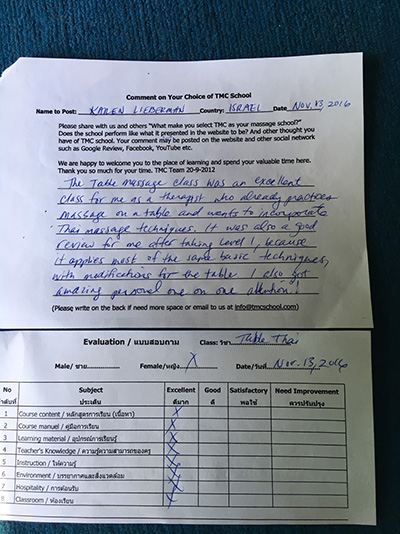 Comment on Your Choice of TMC School
Name to Post: KAREN LIEBERMAN Country: ISRAEL Date NOV. 13, 2016
Please share with us and others "What make you select TMC as your massage school?"
Does the school perform like what it presented in the website to be? And other thought you
have of TMC school. Your comment may be posted on the website and other social network
such as Google Review, Facebook, YouTube etc.
We are happy to welcome you to the place of learning and spend your valuable time here.
Thank you so much for your time. TMC Team 20-9-2012
The Table massage class was an excellent
class for me as a therapist who already practices
massage on a table and wants to incorporate
Thai massage techniques. It was also a good
review for me after taking Level 1, because
it applies most of the same basic techniques,
with modifications for the table. I also got
amazing personal one on one attention!
(Please write on the back if need more space or email to us at info@tmcschool.com)
Evaluation / แบบสอบถาม Class: วิชา Table Thai
Male/ ชาย Female/หญิง X Date/วันที่ Nov. 13, 2016
No Subject Excellent Good Satisfactory Need Improvement
ลำดับที่ ประเด็น ดีมาก ดี พอใช้ ควรปรับปรุง
1 Course content / หลักสูตรการเรียน (เนื้อหา) X
2 Course manuel / คู่มือการเรียน X
3 Learning material / อุปกรณ์การเรียนรู้ X
4 Teacher's Knowledge / ความรู้ความสามารถของครู X
5 Instruction / ให้ความรู้ X
6 Environment / บรรยากาศและสิ่งแวดล้อม X
7 Hospitality / การต้อนรับ X
8 Classroom / ห้องเรียน X